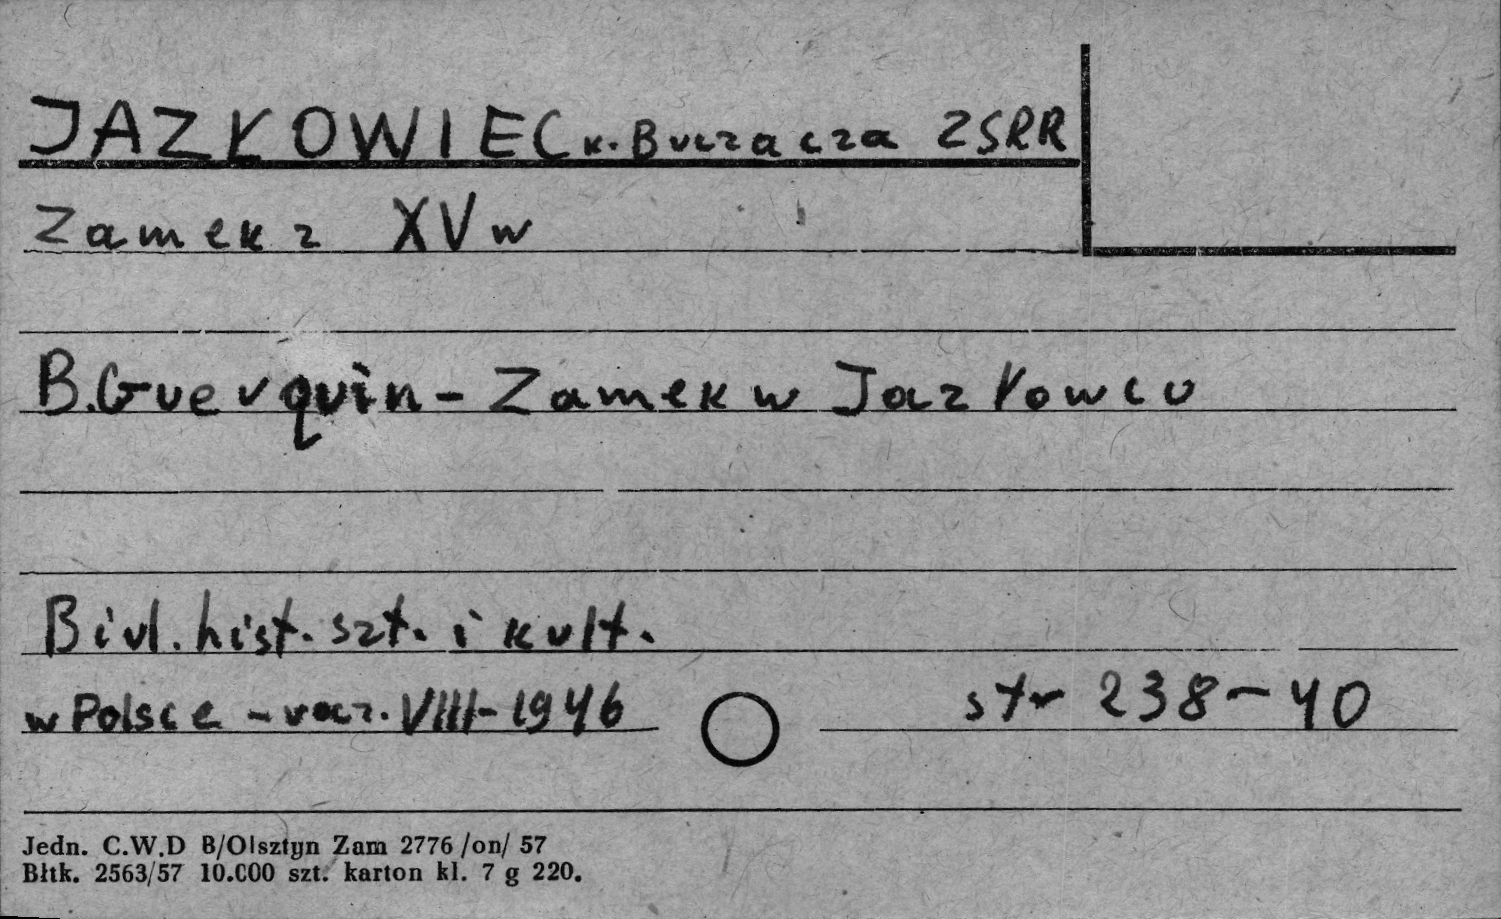 JAZKOWIEC k. Buczacza ZSRR
Zamek z XV w
B. Guerquin - Zamek w Jazkowcu
Biul. hist. szt. i kult.
w Polsce - rocz. VIII - 1946 str 238-40
Jedn. C.W.D B/Olsztyn Zam 2776 /on/ 57
Bltk. 2563/57 10.000 szt. karton kl. 7 g 220.